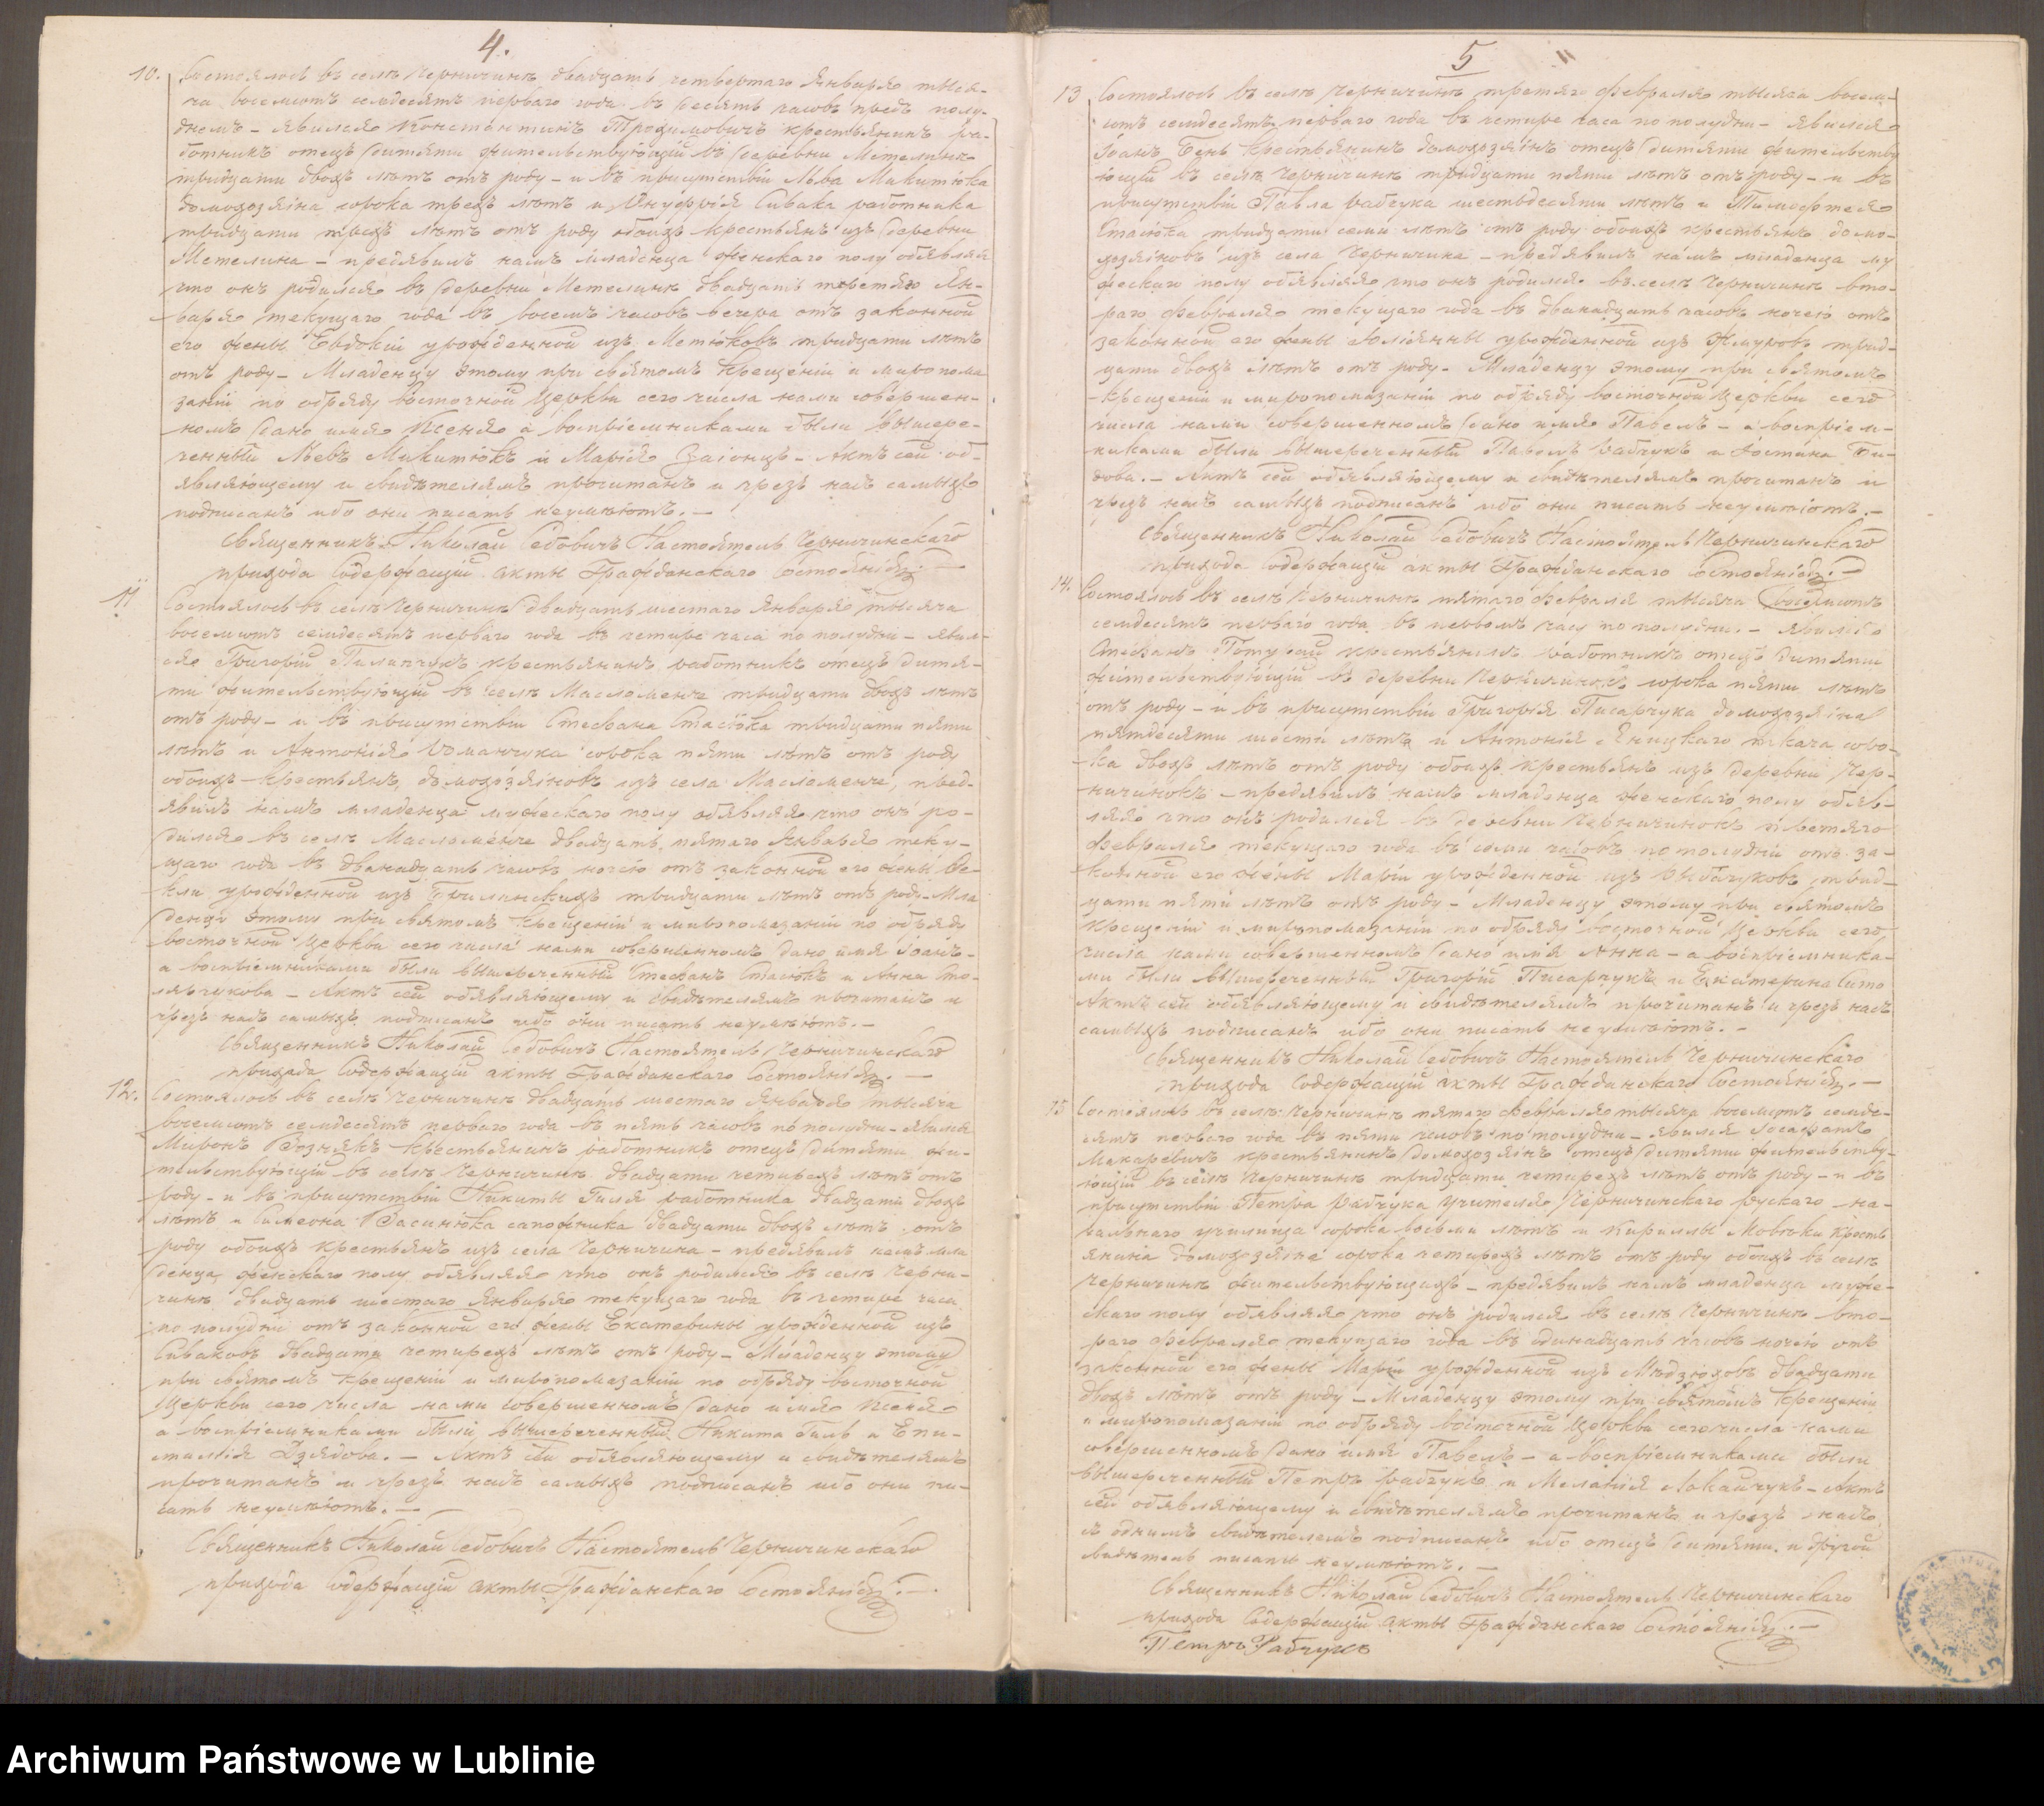 4.
10. Состоялось въ селѣ Черничинѣ двадцать четвертаго Января тыся-
ча восемсотъ семдесятъ перваго года въ десять часовъ предъ полу-
днемъ – явился Константинъ Трофимовичъ крестьянинъ ра-
ботникъ отецъ дитяти жительствующій въ деревни Метелинѣ
тридцати двохъ лѣтъ отъ роду – и въ присутствіи Льва Микитюка
домохозяина сорока трехъ лѣтъ и Онуфрія Сивака работника
тридцати трехъ лѣтъ отъ роду обоихъ крестьянъ изъ деревни
Метелина – предявилъ намъ младенца женскаго полу обявляя
что онъ родился въ деревни Метелинѣ двадцать третяго Ян-
варя текущаго года въ восемъ часовъ вечера отъ законной
его жены Евдокіи урожденной изъ Метюковъ тридцати лѣтъ
отъ роду – Младенцу этому при святомъ крещеніи и миропома
заніи по обряду восточной Церкви сего числа нами совершен-
номъ дано имя Ксенія а воспріемниками были вышере-
ченный Левъ Микитюкъ и Марія Заіонцъ – Актъ сей об-
являющему и свидѣтелямъ прочитанъ и чрезъ насъ самыхъ
подписанъ ибо они писать неумѣютъ. –
Священникъ Николай Седовичъ Настоятель Черничинскаго
прихода Содержащій акты Гражданскаго Состоянія. –
11 Состоялось въ селѣ Черничинѣ двадцать шестаго Января тысяча
восемсотъ семдесятъ перваго года въ четире часа по полудни – явил-
ся Григорій Пилипчукъ крестьянинъ работникъ отецъ дитя-
ти жительствующій въ селѣ Масломенче тридцати двохъ лѣтъ
отъ роду – и въ присутствіи Стефана Стасюка тридцати пяти
лѣтъ и Антонія Романчука сорока пяти лѣтъ отъ роду
обоихъ крестьянъ, домохозяиновъ изъ села Масломенче, пред-
явилъ намъ младенца мужескаго полу обявляя что онъ ро-
дился въ селѣ Масломенче двадцать пятаго Января теку-
щаго года въ дванадцать часовъ ночію отъ законной его жены Фе-
кли урожденной изъ тридцати лѣтъ отъ роду – Мла
денцу этому при святомъ крещеніи и миропомазаніи по обряду
восточной Церкви сего числа нами совершенномъ дано имя Іоанъ –
а воспріемниками были вышереченный Стефанъ Стасюкъ и Анна Сто-
лярчукова – Актъ сей обявляющему и свидѣтелямъ прочитанъ и
чрезъ насъ самыхъ подписанъ ибо они писать неумѣютъ. –
Священникъ Николай Седовичъ Настоятель Черничинскаго
прихода Содержащій акты Гражданскаго Состоянія. –
12. Состоялось въ селѣ Черничинѣ двадцать шестаго Января тысяча
восемсотъ семдесятъ перваго года въ пять часовъ по полудни – явился
Миронъ Вознякъ крестьянинъ работникъ отецъ дитяти жи-
тельствующій въ селѣ Черничинѣ двадцати четирехъ лѣтъ отъ
роду – и въ присутствіи Никиты Гиля работника двадцати двохъ
лѣтъ и Симеона Васинюка сапожника двадцати двохъ лѣтъ отъ
роду обоихъ крестьянъ изъ села Черничина – предявилъ намъ мла
денца женскаго полу обявляя что онъ родился въ селѣ Черни-
чинѣ двадцать шестаго Января текущаго года въ четире часа
по полудни отъ законной его жены Екатерины урожденной изъ
Сиваковъ двадцати четирехъ лѣтъ отъ роду – Младенцу этому
при святомъ крещеніи и миропомазаніи по обряду восточной
Церкви сего числа нами совершенномъ дано имя Ксенія
а воспріемниками были вышереченный Никита Гиль и Епи-
стимія Дзядова. – Актъ сей обявляющему и свидѣтелямъ
прочитанъ и чрезъ насъ самыхъ подписанъ ибо они пи-
сать неумѣютъ. –
Священникъ Николай Седовичъ Настоятель Черничинскаго
прихода Содержащій акты Гражданскаго Состоянія. –
5
13 Состоялось въ селѣ Черничинѣ третяго Февраля тысяча восем-
сотъ семдесятъ перваго года въ четире часа по полудни – явился
Іоанъ Бень крестьянинъ домохозяинъ отецъ дитяти жительству
ющій въ селѣ Черничинѣ тридцати пяти лѣтъ отъ роду – и въ
присутствіи Павла Рабчука шестьдесяти лѣтъ и Тимофтея
Стасюка тридцати семи лѣтъ отъ роду обоихъ крестьянъ домо-
хозяиновъ изъ села Черничина – предявилъ намъ младенца му
жескаго полу обявляя что онъ родился въ селѣ Черничинѣ вто-
раго Февраля текущаго года въ дванадцать часовъ ночію отъ
законной его жены урожденной изъ Жмуровъ трид-
цати двохъ лѣтъ отъ роду – Младенцу этому при святомъ
крещеніи и миропомазаніи по обряду восточной Церкви сего
числа нами совершенномъ дано имя Павелъ – а воспріем-
никами были вышереченный Павелъ Рабчукъ и Іостина
– Актъ сей обявляющему и свидѣтелямъ прочитанъ и
чрезъ насъ самыхъ подписанъ ибо они писать неумѣютъ. –
Священникъ Николай Седовичъ Настоятель Черничинскаго
прихода Содержащій акты Гражданскаго Состоянія. –
14. Состоялось въ селѣ Черничинѣ пятаго Февраля тысяча восемсотъ
семдесятъ перваго года въ первомъ часу по полудни. – явился
Стефанъ Потурай крестьянинъ работникъ отецъ дитяти
жительствующій въ деревни Черничинокъ сорока пяти лѣтъ
отъ роду – и въ присутствіи Григорія Писарчука домохозяина
пятдесяти шести лѣтъ и Антонія ткача соро-
ка двохъ лѣтъ отъ роду обоихъ крестьянъ изъ деревни Чер-
ничинокъ – предявилъ намъ младенца женскаго полу обяв-
ляя что онъ родился въ деревни Черничинокъ третяго
Февраля текущаго года въ семи часовъ по полудни отъ за-
конной его жены Маріи урожденной изъ Рыбачуковъ трид-
цати пяти лѣтъ отъ роду – Младенцу этому при святомъ
крещеніи и миропомазаніи по обряду восточной Церкви сего
числа нами совершенномъ дано имя Анна – а воспріемника-
ми были вышереченный Григорій Писарчукъ и Екатерина
Актъ сей обявляющему и свидѣтелямъ прочитанъ и чрезъ насъ
самыхъ подписанъ ибо они писать неумѣютъ. –
Священникъ Николай Седовичъ Настоятель Черничинскаго
прихода Содержащій акты Гражданскаго Состоянія. –
15 Состоялось въ селѣ Черничинѣ пятаго Февраля тысяча восемсотъ семде-
сятъ перваго года въ пяти часовъ по полудни – явился Іосафатъ
Макаревичъ крестьянинъ домохозяинъ отецъ дитяти жительству-
ющій въ селѣ Черничинѣ тридцати четирехъ лѣтъ отъ роду – и въ
присутствіи Петра Рабчука Учителя Черничинскаго рускаго на-
чальнаго училища сорока восьми лѣтъ и Кириллы крестъ
янина домохозяина сорока четирехъ лѣтъ отъ роду обоихъ въ селѣ
Черничинѣ жительствующихъ – предявилъ намъ младенца муже-
скаго полу обявляя что онъ родился въ селѣ Черничинѣ вто-
раго Февраля текущаго года въ одинадцать часовъ ночію отъ
законной его жены Маріи урожденной изъ двадцати
двохъ лѣтъ отъ роду – Младенцу этому при святомъ крещеніи
и миропомазаніи по обряду восточной Церкви сего числа нами
совершенномъ дано имя Павелъ – а воспріемниками были
вышереченный Петръ Рабчукъ и Меланія – Актъ
сей обявляющему и свидѣтелямъ прочитанъ и чрезъ насъ
и однимъ свидѣтелемъ подписанъ ибо отецъ дитяти и другой
свидѣтель писать неумѣютъ. –
Священникъ Николай Седовичъ Настоятель Черничинскаго
прихода Содержащій акты Гражданскаго Состоянія. –
Петръ Рабчукъ
Archiwum Państwowe w Lublinie